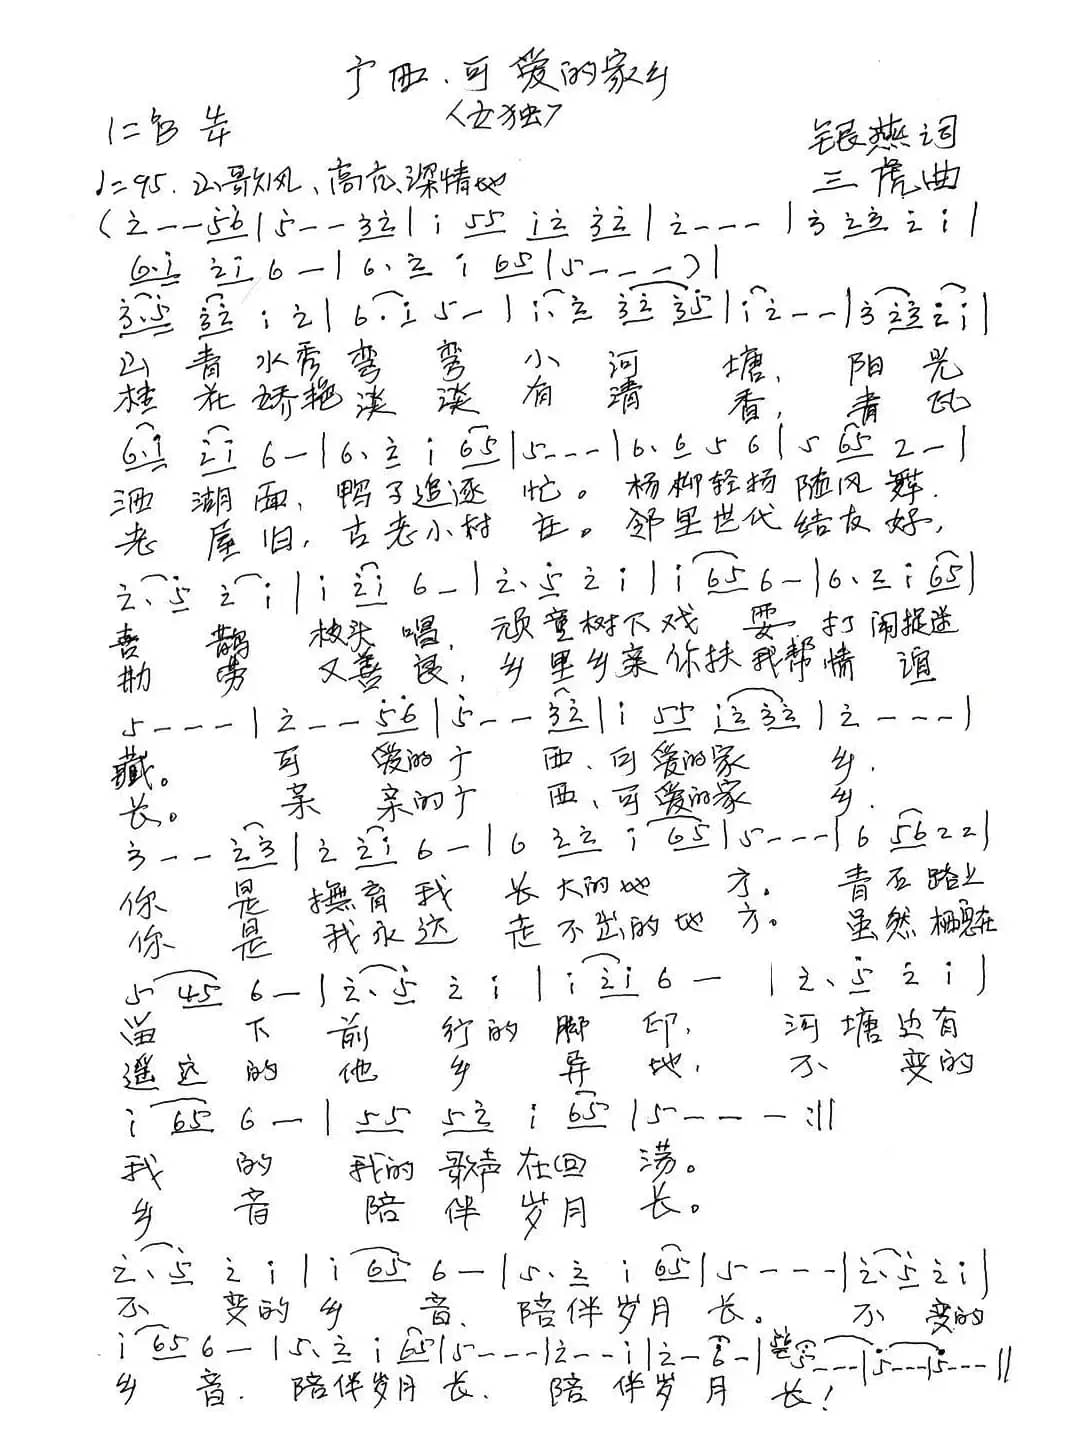 广西、可爱的家乡
〈女独〉
1=ᵇB 4/4
银燕词
♩=95. 山歌风、高亢、深情地
三虎曲
(2̇---5̇6̇|5̇--3̇2̇|1̇ 55 1̇2̇ 3̇2̇|2̇---|3̇ 2̇3̇ 2̇ 1̇|
6·1̇ 2̇1̇ 6-|6·2̇ 1̇ 65|5---)|
3̇·5̇ 3̇2̇ 1̇ 2̇|6·1̇ 5-|1̇·2̇ 3̇2̇ 3̇5̇|1̇2̇--|3̇ 2̇3̇ 2̇1̇|
山青水秀弯弯小河塘,阳光
桂花娇艳淡淡有清香,青瓦
6·1̇ 2̇1̇ 6-|6·2̇ 1̇ 65|5---|6·6 5 6|5 65 2-|
洒湖面,鸭子追逐忙。杨柳轻扬随风舞.
老屋旧,古老小村在。邻里世代结友好,
2̇·5̇ 2̇1̇|1̇ 2̇1̇ 6-|2̇·5̇ 2̇ 1̇|1̇ 65 6-|6·2̇ 1̇ 65|
喜鹊枝头唱,顽童树下戏耍打闹捉迷
勤劳又善良,乡里乡亲你扶我帮情谊
5---|2̇--5̇6̇|5̇--3̇2̇|1̇ 55 1̇2̇ 3̇2̇|2̇---|
藏。可爱的广西、可爱的家乡.
长。亲亲的广西、可爱的家乡.
3̇--2̇3̇|2̇ 2̇1̇ 6-|6 2̇2̇ 1̇ 65|5---|6 56 2 2|
你是抚育我长大的地方。青石路上
你是我永远走不出的地方。虽然栖息在
5 45 6-|2̇·5̇ 2̇ 1̇|1̇ 2̇1̇ 6-|2̇·5̇ 2̇ 1̇|
留下前行的脚印,河塘边有
遥远的他乡异地,不变的
1̇ 65 6-|55 52̇ 1̇ 65|5---:||
我的我的歌声在回荡。
乡音陪伴岁月长。
2̇·5̇ 2̇ 1̇|1̇ 65 6-|5·2̇ 1̇ 65|5---|2̇·5̇ 2̇1̇|
不变的乡音.陪伴岁月长。不变的
1̇ 65 6-|5·2̇ 1̇ 65|5---|2̇--1̇|2̇-6̇-|5̇---|5̇---|5̇---||
乡音.陪伴岁月长、陪伴岁月长!